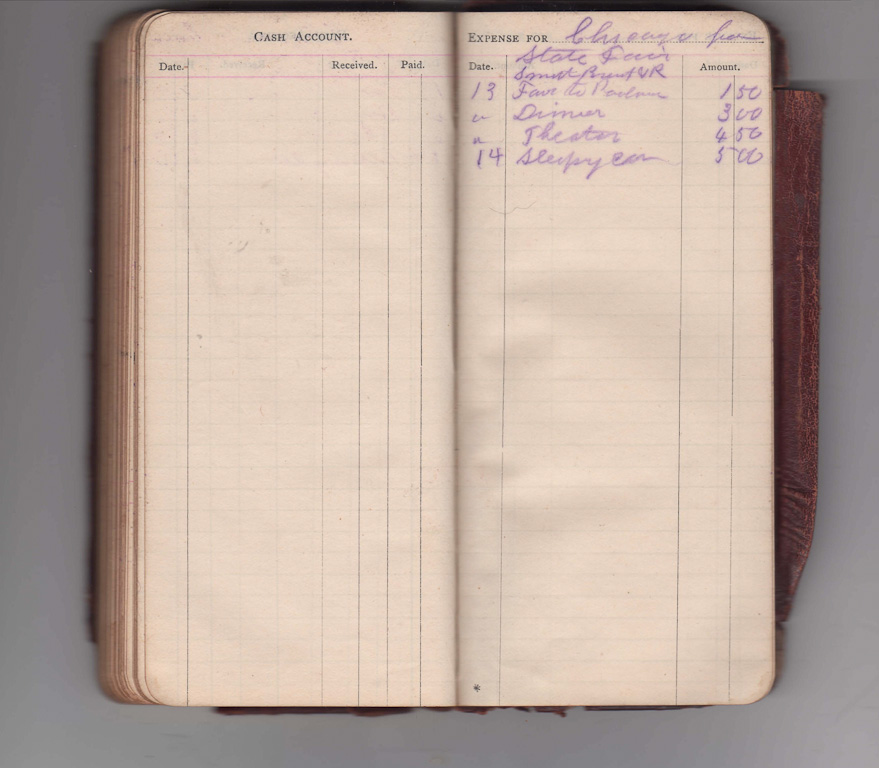 CASH ACCOUNT.
Date. Received. Paid.
EXPENSE FOR Chicago from
State Fair
Date. Amount.
13 Fare to 1 50
" Dinner 3 00
" Theater 4 50
14 Sleepy car 5 00